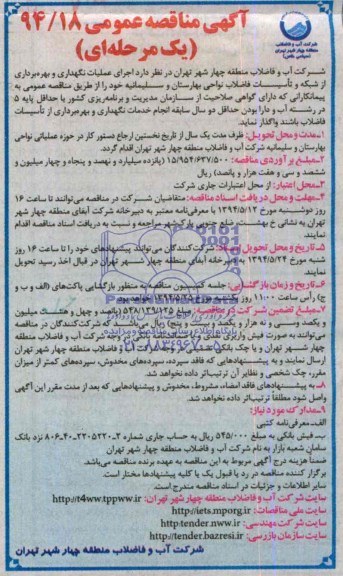 شرکت آب و فاضلاب
منطقه چهار شهر تهران
(سهامی خاص)
آگهی مناقصه عمومی ۹۴/۱۸
(یک مرحله‌ای)
شرکت آب و فاضلاب منطقه چهار شهر تهران در نظر دارد اجرای عملیات نگهداری و بهره‌برداری
از شبکه و تأسیسات فاضلاب نواحی بهارستان و سلیمانیه خود را از طریق مناقصه عمومی به
پیمانکارانی که دارای گواهی صلاحیت از سازمان مدیریت و برنامه‌ریزی کشور با حداقل پایه ۵
در رشته آب و دارا بودن حداقل دو سال سابقه انجام خدمات نگهداری و بهره‌برداری از تأسیسات
فاضلاب باشند واگذار نماید.
۱ـ مدت و محل تحویل: ظرف مدت یک سال از تاریخ نخستین ارجاع دستور کار در حوزه عملیاتی نواحی
بهارستان و سلیمانیه شرکت آب و فاضلاب منطقه چهار شهر تهران اقدام گردد.
۲ـ مبلغ برآوردی مناقصه: ۱۵/۹۵۴/۶۳۷/۵۰۰ (پانزده میلیارد و نهصد و پنجاه و چهار میلیون و
ششصد و سی و هفت هزار و پانصد) ریال
۳ـ محل اعتبار: از محل اعتبارات جاری شرکت
۴ـ مهلت و محل دریافت اسناد مناقصه: متقاضیان شرکت در مناقصه می‌توانند تا ساعت ۱۶
روز دوشنبه مورخ ۱۳۹۴/۵/۱۲ با معرفی‌نامه معتبر به دبیرخانه شرکت آبفای منطقه چهار شهر
تهران به نشانی خ بهشتی، ضلع جنوبی پارک شهر مراجعه و نسبت به دریافت اسناد مناقصه اقدام
نمایند.
۵ـ تاریخ و محل تحویل اسناد: شرکت‌کنندگان می‌توانند پیشنهادهای خود را تا ساعت ۱۶ روز
شنبه مورخ ۱۳۹۴/۵/۲۴ به دبیرخانه آبفای منطقه چهار شهر تهران در قبال اخذ رسید تحویل
نمایند.
۶ـ تاریخ و زمان بازگشایی: جلسه کمیسیون مناقصه به منظور بازگشایی پاکت‌های (الف و ب و
ج) رأس ساعت ۱۱:۰۰ روز یکشنبه مورخ ۱۳۹۴/۵/۲۵ خواهد بود.
۷ـ مبلغ تضمین شرکت در مناقصه: مبلغ ۵۴۸/۱۳۹/۱۲۵ (پانصد و چهل و هشت میلیون
و یکصد و سی و نه هزار و یکصد و بیست و پنج) ریال می‌باشد که شرکت‌کنندگان در مناقصه
می‌توانند به صورت فیش واریزی نقدی و یا ضمانت‌نامه بانکی در وجه شرکت آب و فاضلاب منطقه
چهار شهر تهران و یا چک بانکی تضمینی در وجه شرکت آب و فاضلاب منطقه چهار شهر تهران
ارسال نمایند و به پیشنهادهایی که فاقد سپرده، سپرده‌های مخدوش، سپرده‌های کمتر از میزان
مقرر، چک شخصی و نظایر آن ترتیب‌اثر داده نخواهد شد.
۸ـ به پیشنهادهای فاقد امضاء، مشروط، مخدوش و پیشنهادهایی که بعد از مدت مقرر این آگهی
واصل شود مطلقاً ترتیب‌اثر داده نخواهد شد.
۹ـ مدارک مورد نیاز:
الف ـ معرفی‌نامه کتبی
ب ـ فیش بانکی به مبلغ ۵۴۵/۰۰۰ ریال به حساب جاری شماره ۲ـ۲۲۰۵۲۲۰ـ۴۰ـ۸۰۶ نزد بانک
سامان شعبه بازار به نام شرکت آب و فاضلاب منطقه چهار شهر تهران
ضمناً هزینه درج آگهی مربوط به این مناقصه به عهده برنده مناقصه می‌باشد.
برگزار کننده مناقصه در رد یا قبول یک یا کلیه پیشنهادها مختار است.
سایر اطلاعات و جزئیات در اسناد مناقصه مندرج است.
سایت شرکت آب و فاضلاب منطقه چهار شهر تهران: http://t4ww.tppww.ir
سایت ملی مناقصات: http://iets.mporg.ir
سایت شرکت مهندسی: http://tender.nww.ir
سایت سازمان بازرسی: http://tender.bazresi.ir
شرکت آب و فاضلاب منطقه چهار شهر تهران